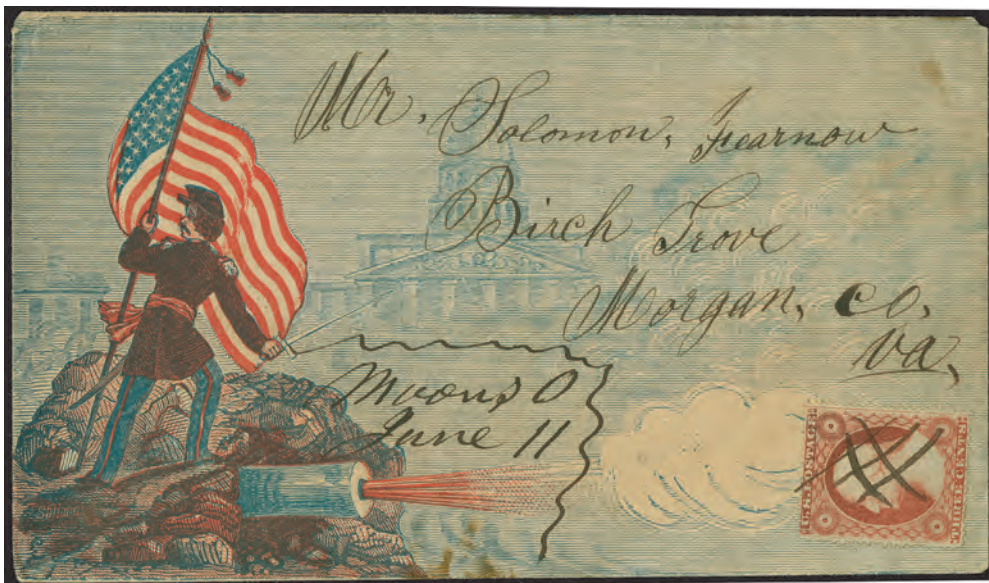 Mr. Solomon, Fearnow
Birch Grove
Morgan, Co,
Va,
Moons O
June 11
U.S. POSTAGE
THREE CENTS